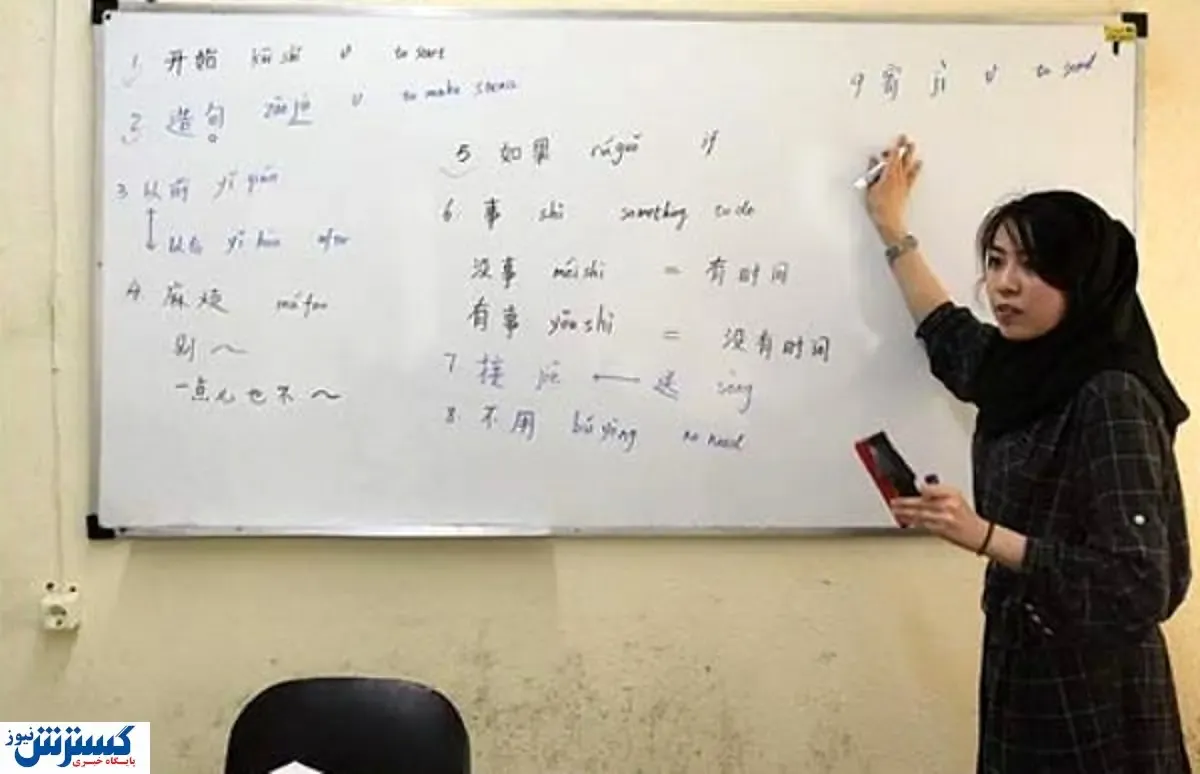 1. 开始 kāi shǐ v to start
2. 造句 zào jù v to make
3 以前 yǐ qián
以后 yǐ hòu after
4. 麻烦 má fan
别~
一点儿也不~
5 如果 rúguǒ if
6. 事 shì something to do
没事 méi shì = 有时间
有事 yǒu shì = 没有时间
7 接 jiē ⟷ 送 sòng
8. 不用 bú yòng no need
9 寄 jì v to send
گسترش نیوز
پایگاه خبری